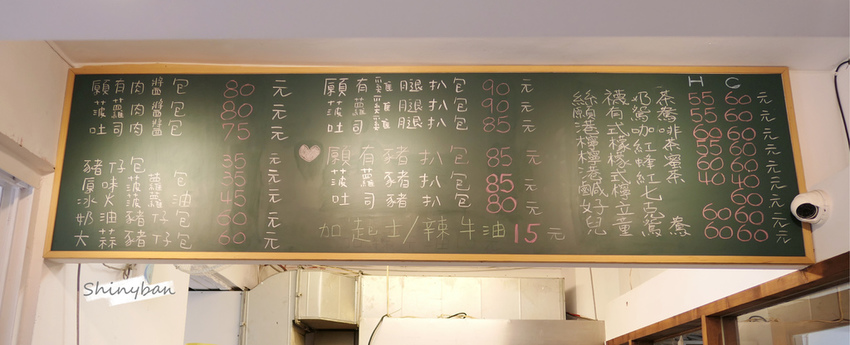 願有肉醬包 80元
菠蘿肉醬包 80元
吐司肉醬包 75元
豬仔包 35元
原味菠蘿包 35元
冰火菠蘿油 45元
奶油豬仔包 元
大蒜豬仔包 60元
願有雞腿扒包 90元
菠蘿雞腿扒包 90元
吐司雞腿扒包 85元
願有豬扒包 85元
菠蘿豬扒包 85元
吐司豬扒包 80元
加起士/辣牛油 15元
H C
絲襪奶茶 55 60 元
願有鴛鴦 55 60 元
港式咖啡 60 60 元
檸檬紅茶 55 60 元
檸檬蜂蜜 60 60 元
港式紅茶 40 40 元
鹹檸七 60 元
好立克 60 60 元
兒童鴛鴦 60 60 元
Shinyban